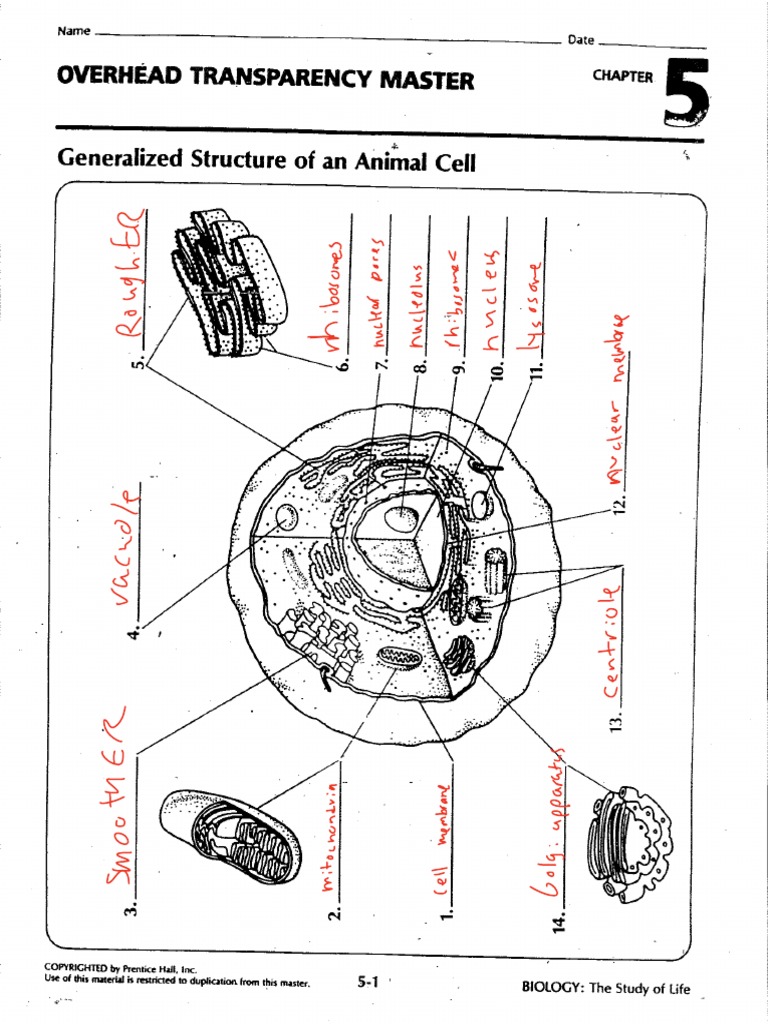 Name
Date
OVERHEAD TRANSPARENCY MASTER
CHAPTER 5
Generalized Structure of an Animal Cell
1. cell membrane
2. mitochondrin
3. SmootHER
4. vacuole
5. RoughER
6. rhibosomes
7. nuclear pores
8. nucleolus
9. rhibosomes
10. nucleus
11. lysosome
12. nuclear membrae
13. Centriole
14. Golgi apparatus
COPYRIGHTED by Prentice Hall, Inc.
Use of this material is restricted to duplication from this master.
5-1
BIOLOGY: The Study of Life